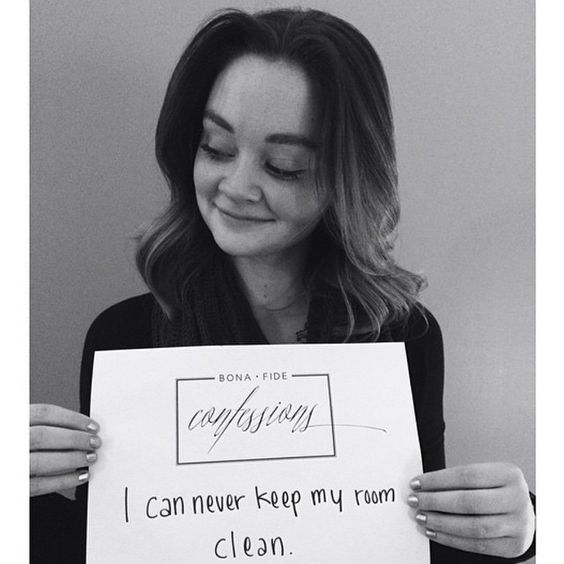 BONA · FIDE
confessions
I can never keep my room
clean.